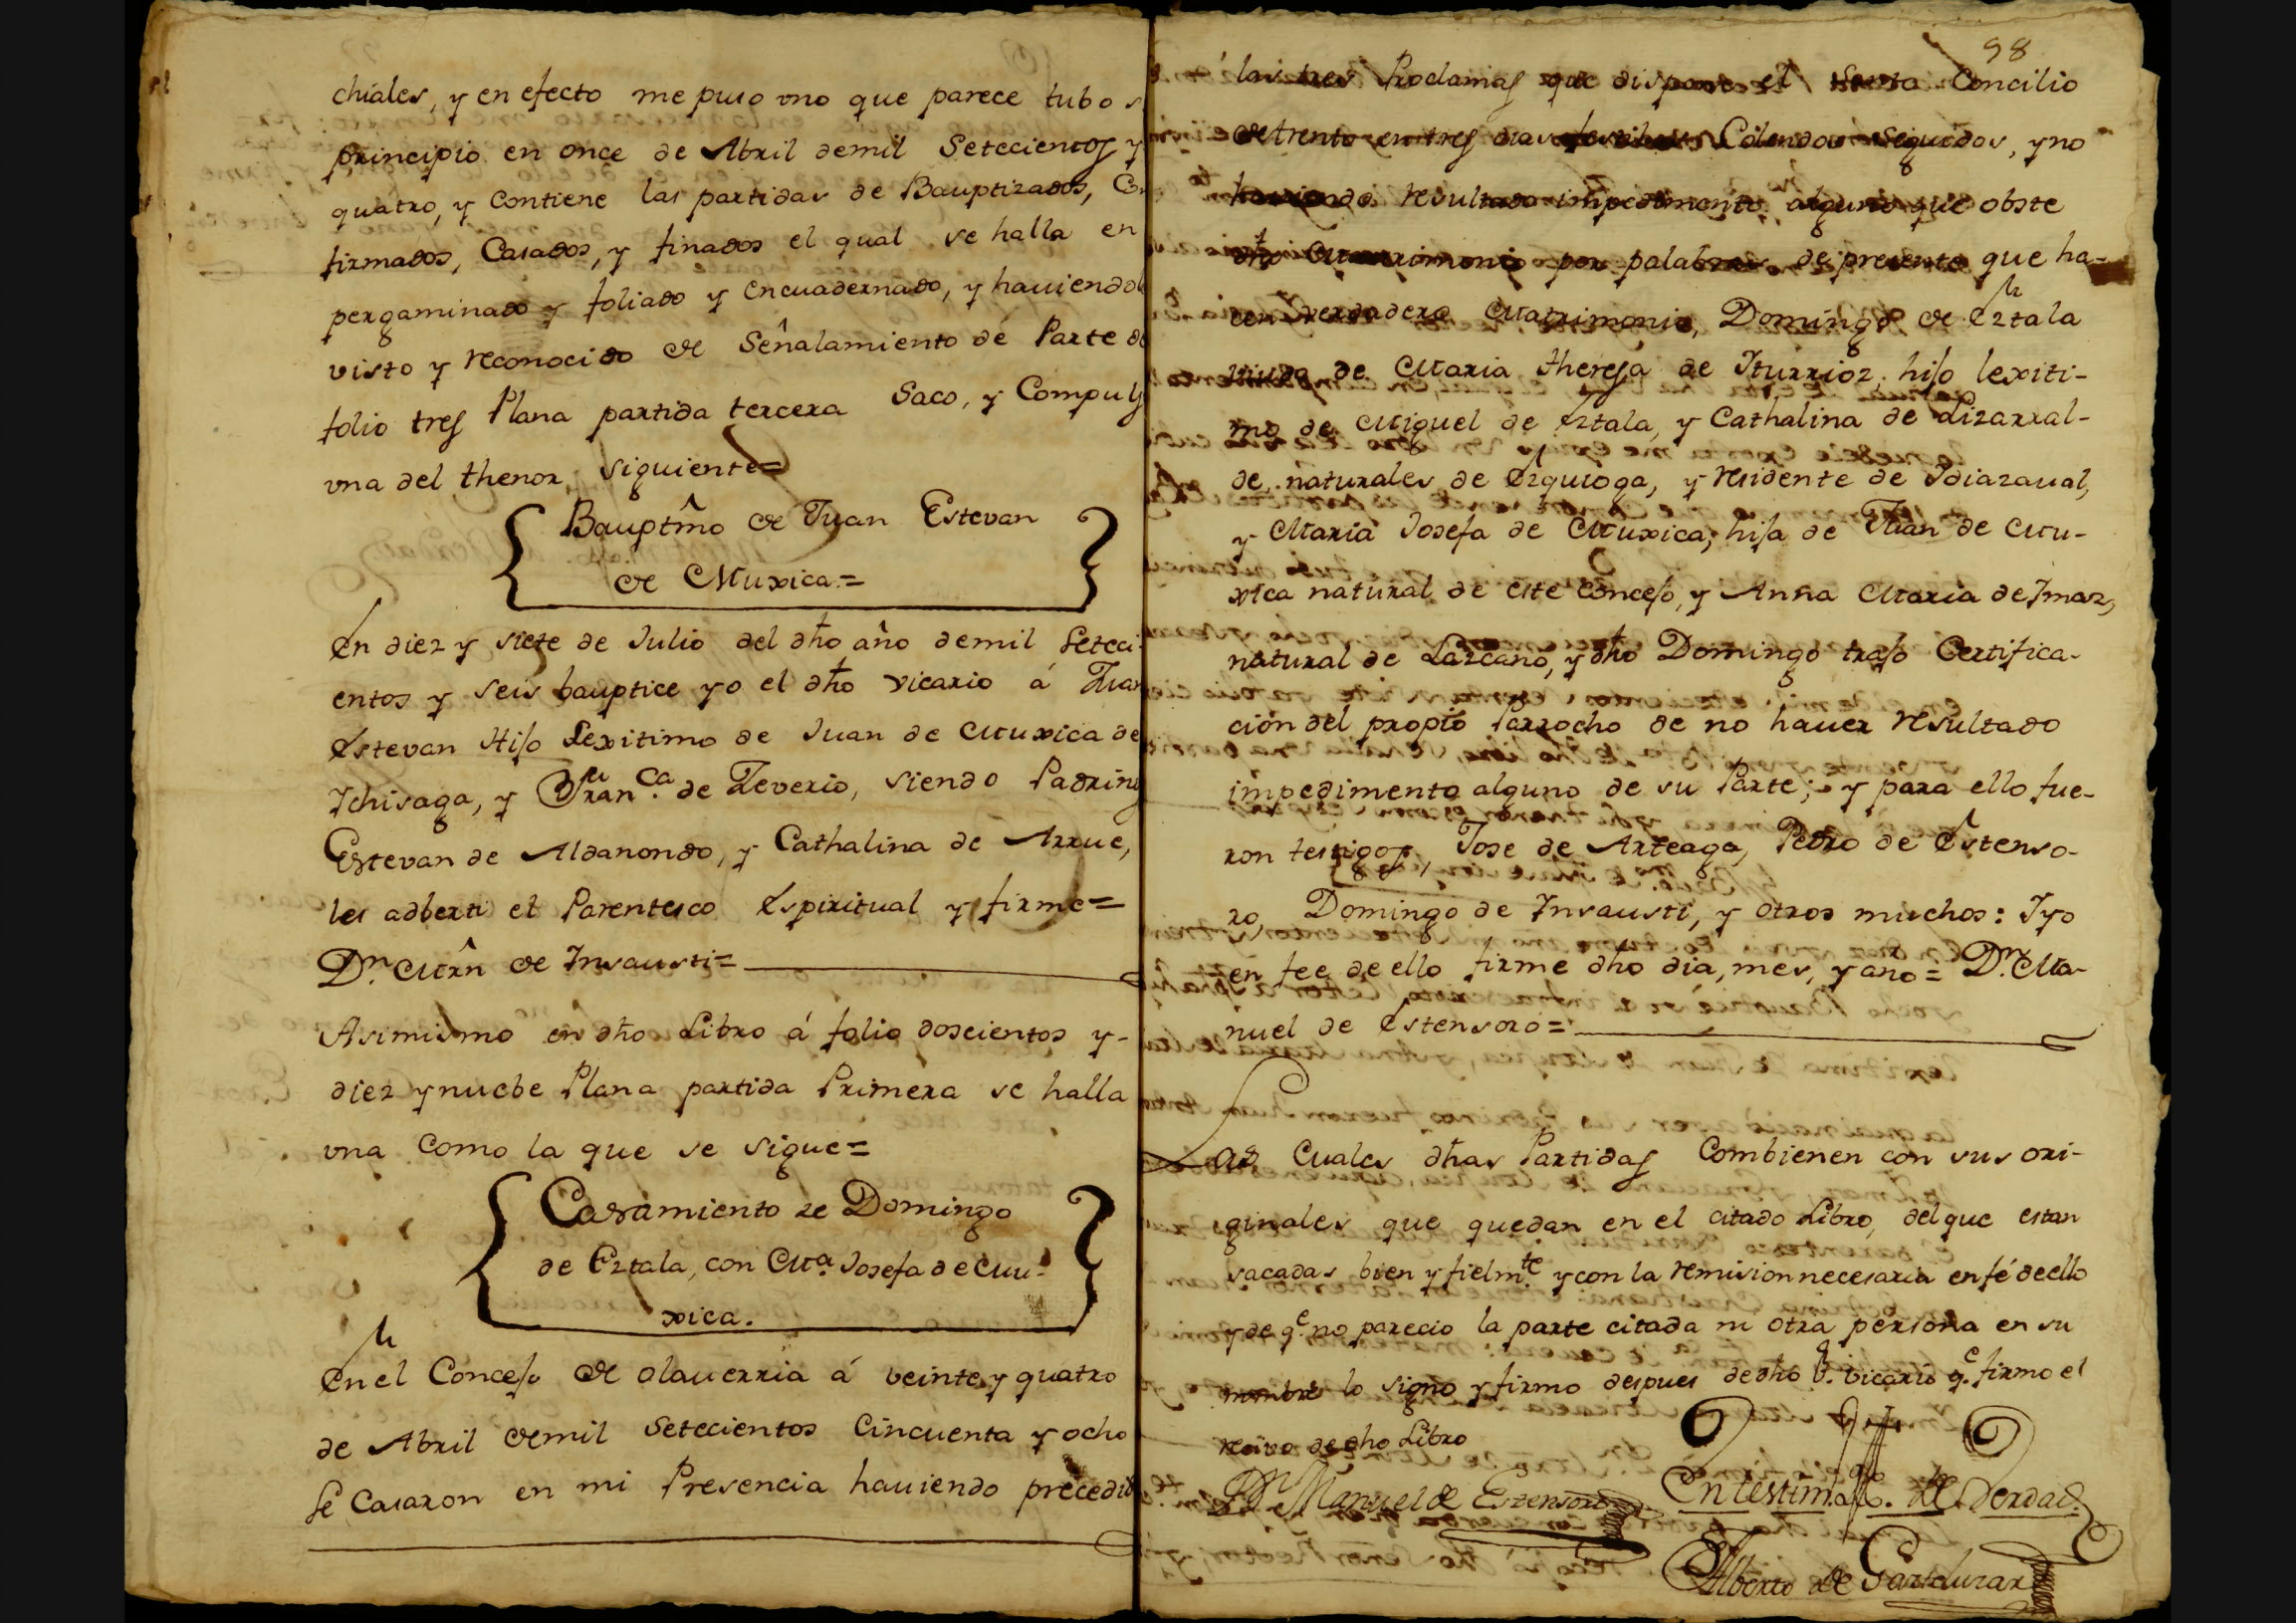 chiales, y en efecto me puso vno que parece tubo s
principio en once de Abril demil Setecientos y
quatro, y Contiene las partidas de Bauptizados, Co
firmados, Casados, y finados el qual se halla en
pergaminado y foliado y encuadernado, y haviendol
visto y reconocido de Señalamiento de Parte de
folio tres Plana partida tercera Saco, y Compuls
vna del thenor siguiente=
Bauptm̂o de Juan Estevan
de Muxica.=
En diez y siete de Julio del dho año demil Seteci-
entos y seis bauptice yo el dho vicario á Juan
Estevan Hijo Lexitimo de Juan de Muxica de
Ychisaga, y Fran.ca de Zeverio, siendo Padrino
Estevan de Aldanondo, y Cathalina de Arrue,
les adberti el Parentesco Espiritual y firme=
Dn. Mrn̂ de Insausti=
Asimismo en dho Libro á folio doscientos y-
diez y nuebe Plana partida Primera se halla
vna Como la que se sigue=
Casamiento de Domingo
de Eztala, con Ma. Josefa de Mu-
xica.
En el Concejo de olaverria á veinte y quatro
de Abril demil Setecientos Cincuenta y ocho
se Casaron en mi Presencia haviendo precedid
98
las tres Proclamas que dispone el Santo Concilio
de trento en tres dias festibos Colendos seguidos, y no
haviendo resultado impedimento alguno que obste
dho Matrimonio por palabras de presente que ha-
cen verdadero Matrimonio, Domingo de Eztala
viudo de Maria theresa de Yturrioz, hijo lexiti-
mo de Miguel de Eztala, y Cathalina de Lizarral-
de, naturales de Ezquioga, y residente de Idiazaval,
y Maria Josefa de Muxica, hija de Juan de Mu-
xica natural de este Concejo, y Anna Maria de Imaz,
natural de Lazcano, y dho Domingo trajo Certifica-
ción del propio Parrocho de no haver resultado
impedimento alguno de su Parte; y para ello fue-
ron testigos, Jose de Arteaga, Pedro de Estenso-
ro, Domingo de Insausti, y otros muchos: Yyo
en fee de ello firme dho dia, mes, y año= Dn. Ma-
nuel de Estensoro=
as Cuales dhas Partidas Combienen con sus ori-
ginales que quedan en el citado Libro, del que estan
sacadas bien y fielmte. y con la remision necesaria en fé de ello
y de qe. no parecio la parte citada ni otra persona en su
nombre lo signo y firmo despues de dho S. vicario qe. firmo el
recivo de dho Libro
Dn Manuel de Estensoro
En testimo. de Verdad.
Alberto de Gaztelurar